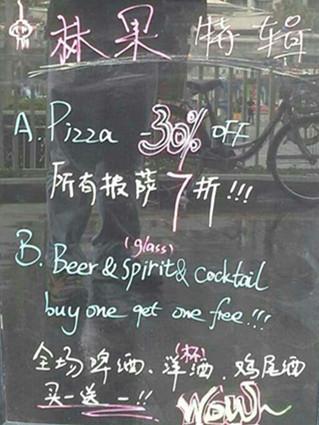 林果 特辑
A. Pizza -30% OFF
所有披萨 7折!!!
(glass)
B. Beer & Spirit & cocktail
buy one get one free!!!
(杯)
全场啤酒、洋酒、鸡尾酒
买一送一!!
WOW